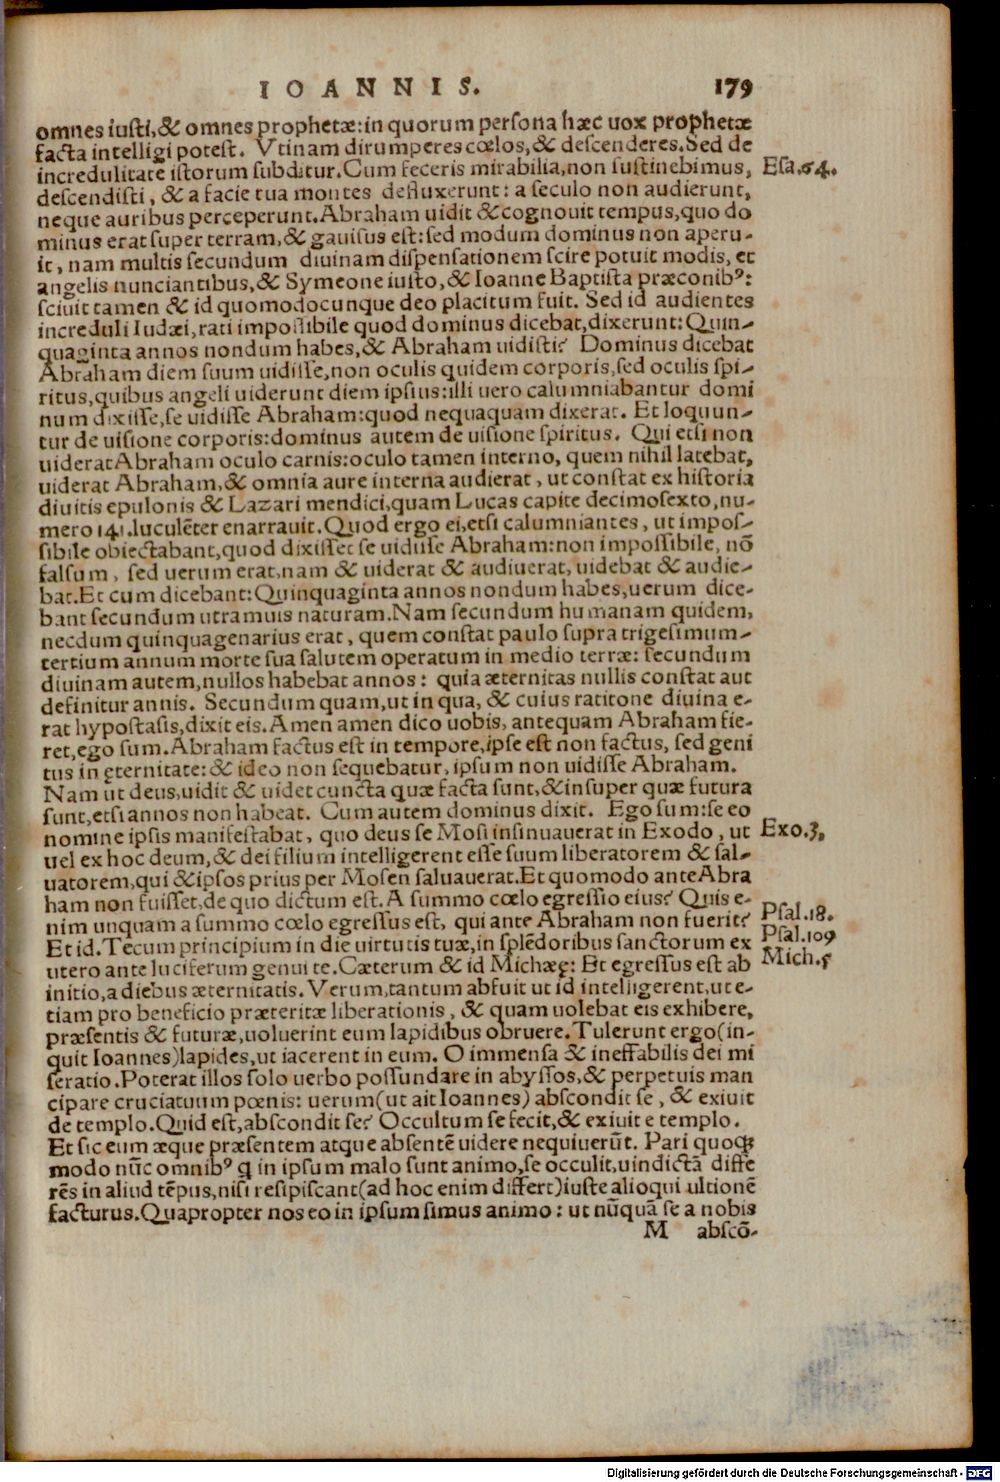 IOANNIS. 179
omnes iusti,& omnes prophetæ:in quorum persona hæc uox prophetæ
facta intelligi potest. Vtinam dirumperes cœlos,& descenderes.Sed de
incredulitate istorum subditur.Cum feceris mirabilia,non sustinebimus, Esa.64.
descendisti, & a facie tua montes defluxerunt: a seculo non audierunt,
neque auribus perceperunt.Abraham uidit & cognouit tempus,quo do
minus erat super terram,& gauisus est:sed modum dominus non aperu-
it, nam multis secundum diuinam dispensationem scire potuit modis, et
angelis nunciantibus,& Symeone iusto,& Ioanne Baptista præconibꝰ:
sciuit tamen & id quomodocunque deo placitum fuit. Sed id audientes
increduli Iudæi,rati impossibile quod dominus dicebat,dixerunt:Quin-
quaginta annos nondum habes,& Abraham uidisti? Dominus dicebat
Abraham diem suum uidisse,non oculis quidem corporis,sed oculis spi-
ritus,quibus angeli uiderunt diem ipsius:illi uero calumniabantur domi
num dixisse,se uidisse Abraham:quod nequaquam dixerat. Et loquun-
tur de uisione corporis:dominus autem de uisione spiritus. Qui etsi non
uiderat Abraham oculo carnis:oculo tamen interno, quem nihil latebat,
uiderat Abraham,& omnia aure interna audierat, ut constat ex historia
diuitis epulonis & Lazari mendici,quam Lucas capite decimosexto,nu-
mero 141.luculēter enarrauit.Quod ergo ei,etsi calumniantes, ut impos-
sibile obiectabant,quod dixisset se uidisse Abraham:non impossibile, nō
falsum, sed uerum erat,nam & uiderat & audiuerat, uidebat & audie-
bat.Et cum dicebant:Quinquaginta annos nondum habes,uerum dice-
bant secundum utramuis naturam.Nam secundum humanam quidem,
necdum quinquagenarius erat, quem constat paulo supra trigesimum-
tertium annum morte sua salutem operatum in medio terræ: secundum
diuinam autem,nullos habebat annos: quia æternitas nullis constat aut
definitur annis. Secundum quam,ut in qua, & cuius ratitone diuina e-
rat hypostasis,dixit eis.Amen amen dico uobis, antequam Abraham fie-
ret,ego sum.Abraham factus est in tempore,ipse est non factus, sed geni
tus in ęternitate:& ideo non sequebatur, ipsum non uidisse Abraham.
Nam ut deus,uidit & uidet cuncta quæ facta sunt,& insuper quæ futura
sunt,etsi annos non habeat. Cum autem dominus dixit. Ego sum:se eo
nomine ipsis manifestabat, quo deus se Mosi insinuauerat in Exodo, ut Exo.3.
uel ex hoc deum,& dei filium intelligerent esse suum liberatorem & sal-
uatorem,qui & ipsos prius per Mosen saluauerat.Et quomodo ante Abra
ham non fuisset,de quo dictum est.A summo cœlo egressio eius? Quis e-
nim unquam a summo cœlo egressus est, qui ante Abraham non fuerit? Psal.18.
Et id.Tecum principium in die uirtutis tuæ,in splēdoribus sanctorum ex Psal.109
utero ante luciferum genui te.Cæterum & id Michæę: Et egressus est ab Mich.5
initio,a diebus æternitatis. Verum,tantum abfuit ut id intelligerent,ut e-
tiam pro beneficio præteritæ liberationis, & quam uolebat eis exhibere,
præsentis & futuræ,uoluerint eum lapidibus obruere. Tulerunt ergo(in-
quit Ioannes)lapides,ut iacerent in eum. O immensa & ineffabilis dei mi
seratio.Poterat illos solo uerbo possundare in abyssos,& perpetuis man
cipare cruciatuum pœnis: uerum(ut ait Ioannes) abscondit se, & exiuit
de templo.Quid est,abscondit se? Occultum se fecit,& exiuit e templo.
Et sic eum æque præsentem atque absentē uidere nequiuerūt. Pari quoqꝫ
modo nūc omnibꝰ q̄ in ipsum malo sunt animo,se occulit,uindictā diffe
rēs in aliud tēpus,nisi resipiscant(ad hoc enim differt)iuste alioqui ultionē
facturus.Quapropter nos eo in ipsum simus animo: ut nūquā se a nobis
M abscō-
Digitalisierung gefördert durch die Deutsche Forschungsgemeinschaft - DFG